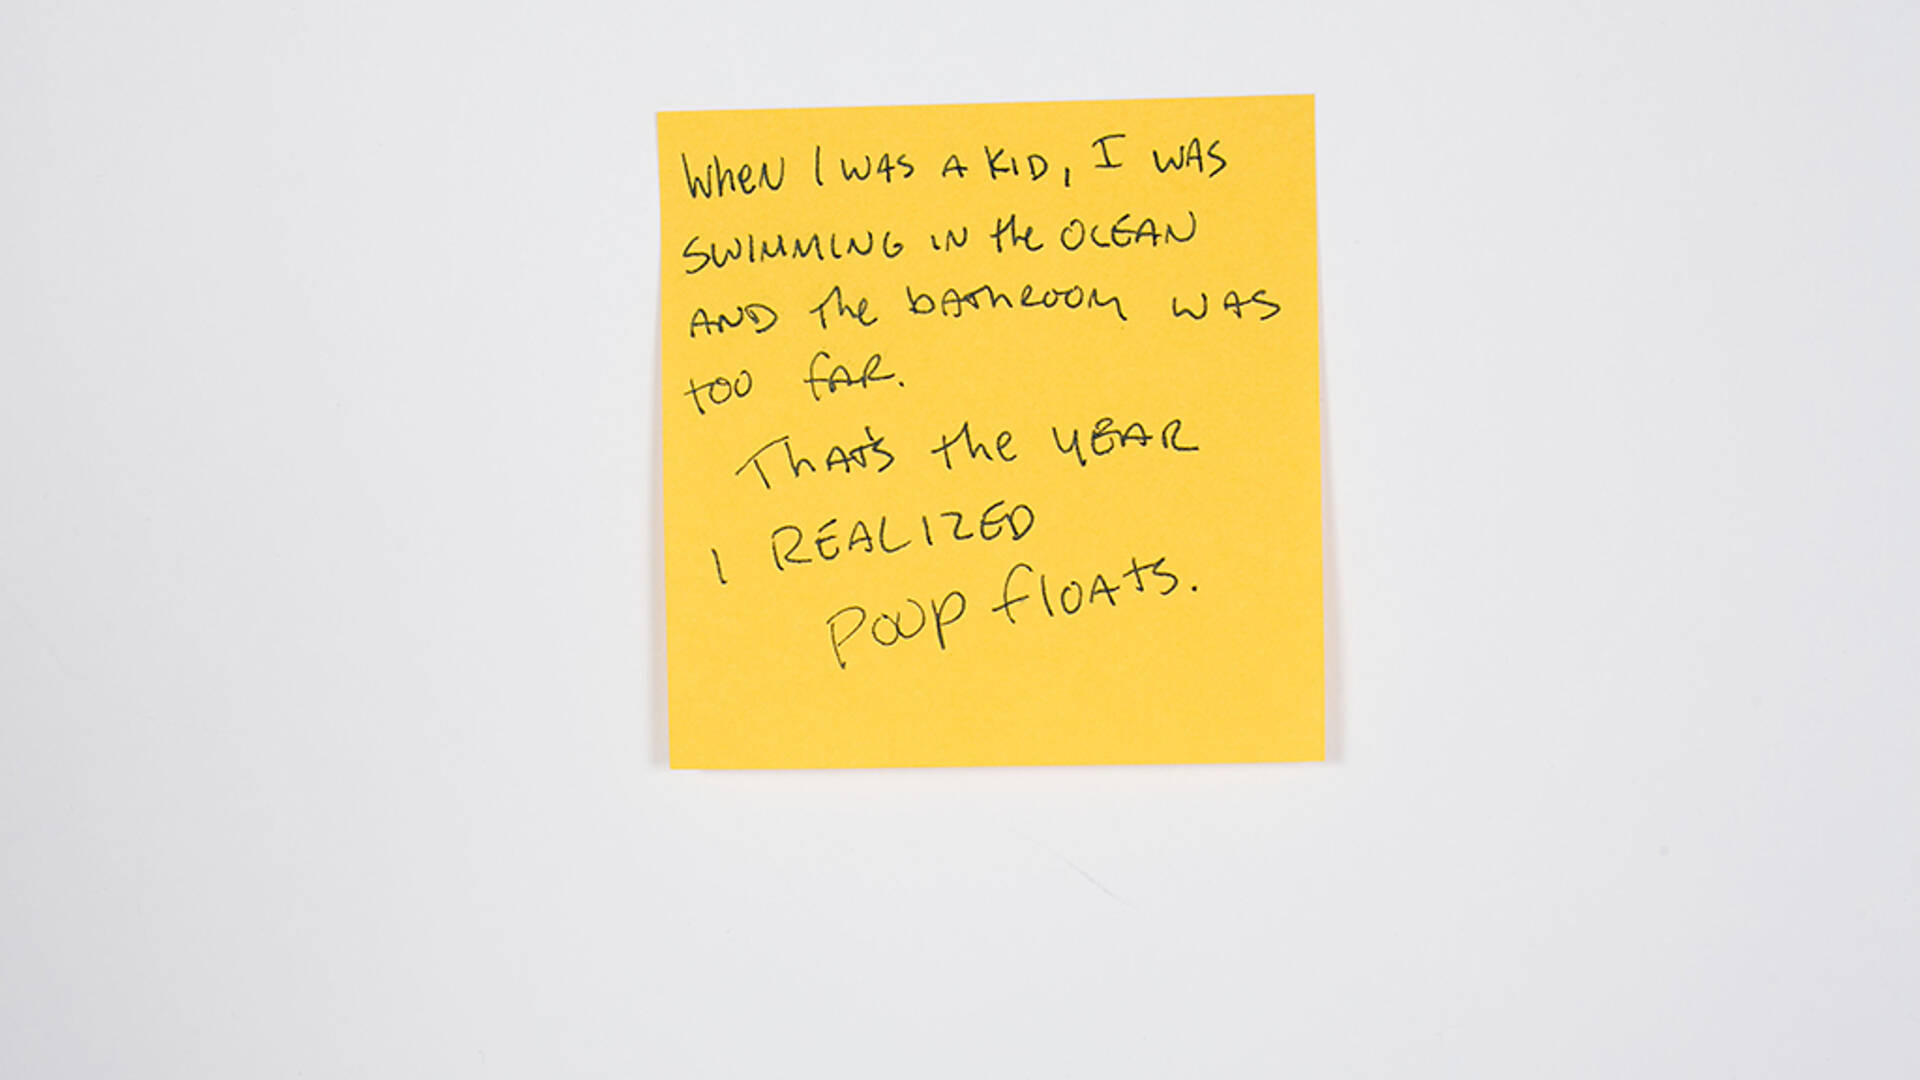 When I was a kid, I was
swimming in the ocean
and the bathroom was
too far.
That's the year
I realized
poop floats.